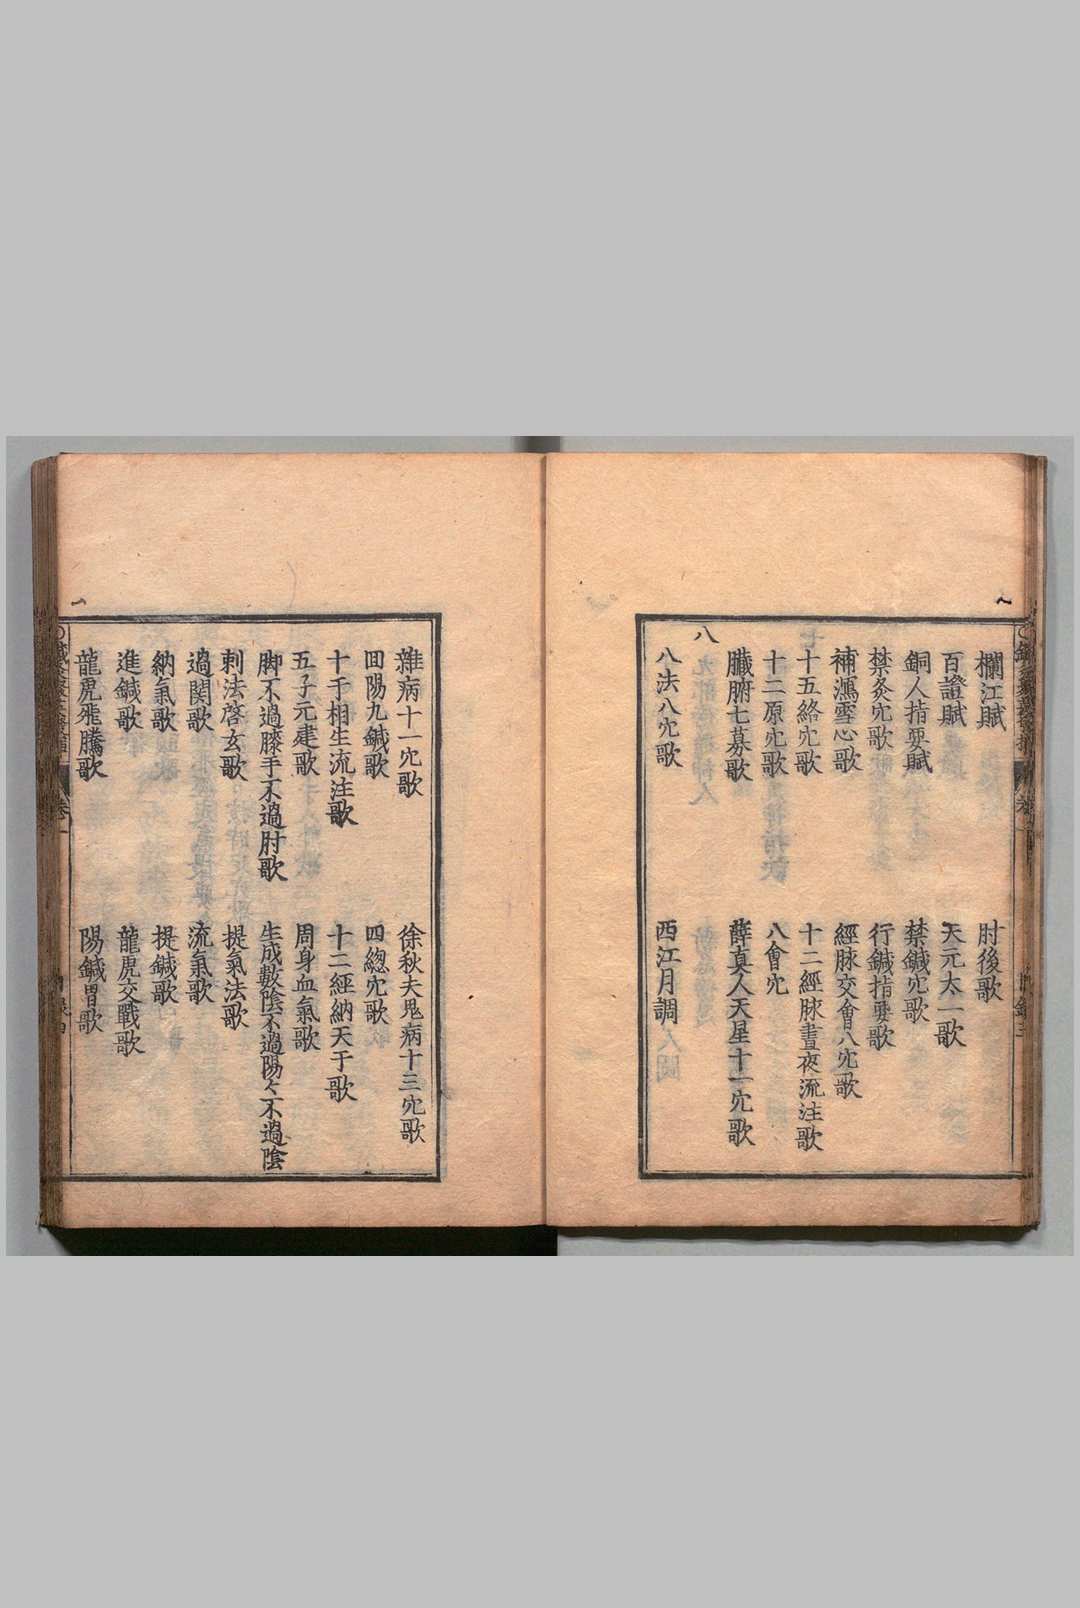 欄江賦
肘後歌
百證賦
天元太一歌
銅人指要賦
禁鍼穴歌
禁灸穴歌
行鍼指要歌
補瀉雪心歌
經脉交會八穴歌
十五絡穴歌
十二經脉晝夜流注歌
十二原穴歌
八會穴
臟腑七募歌
薛真人天星十一穴歌
八
八法八穴歌
西江月調
雜病十一穴歌
徐秋夫鬼病十三穴歌
回陽九鍼歌
四總穴歌
十干相生流注歌
十二經納天干歌
五子元建歌
周身血氣歌
脚不過膝手不過肘歌
生成數陰不過陽々不過陰
刺法啓玄歌
提氣法歌
過関歌
流氣歌
納氣歌
提鍼歌
進鍼歌
龍虎交戰歌
龍虎飛騰歌
陽鍼胃歌